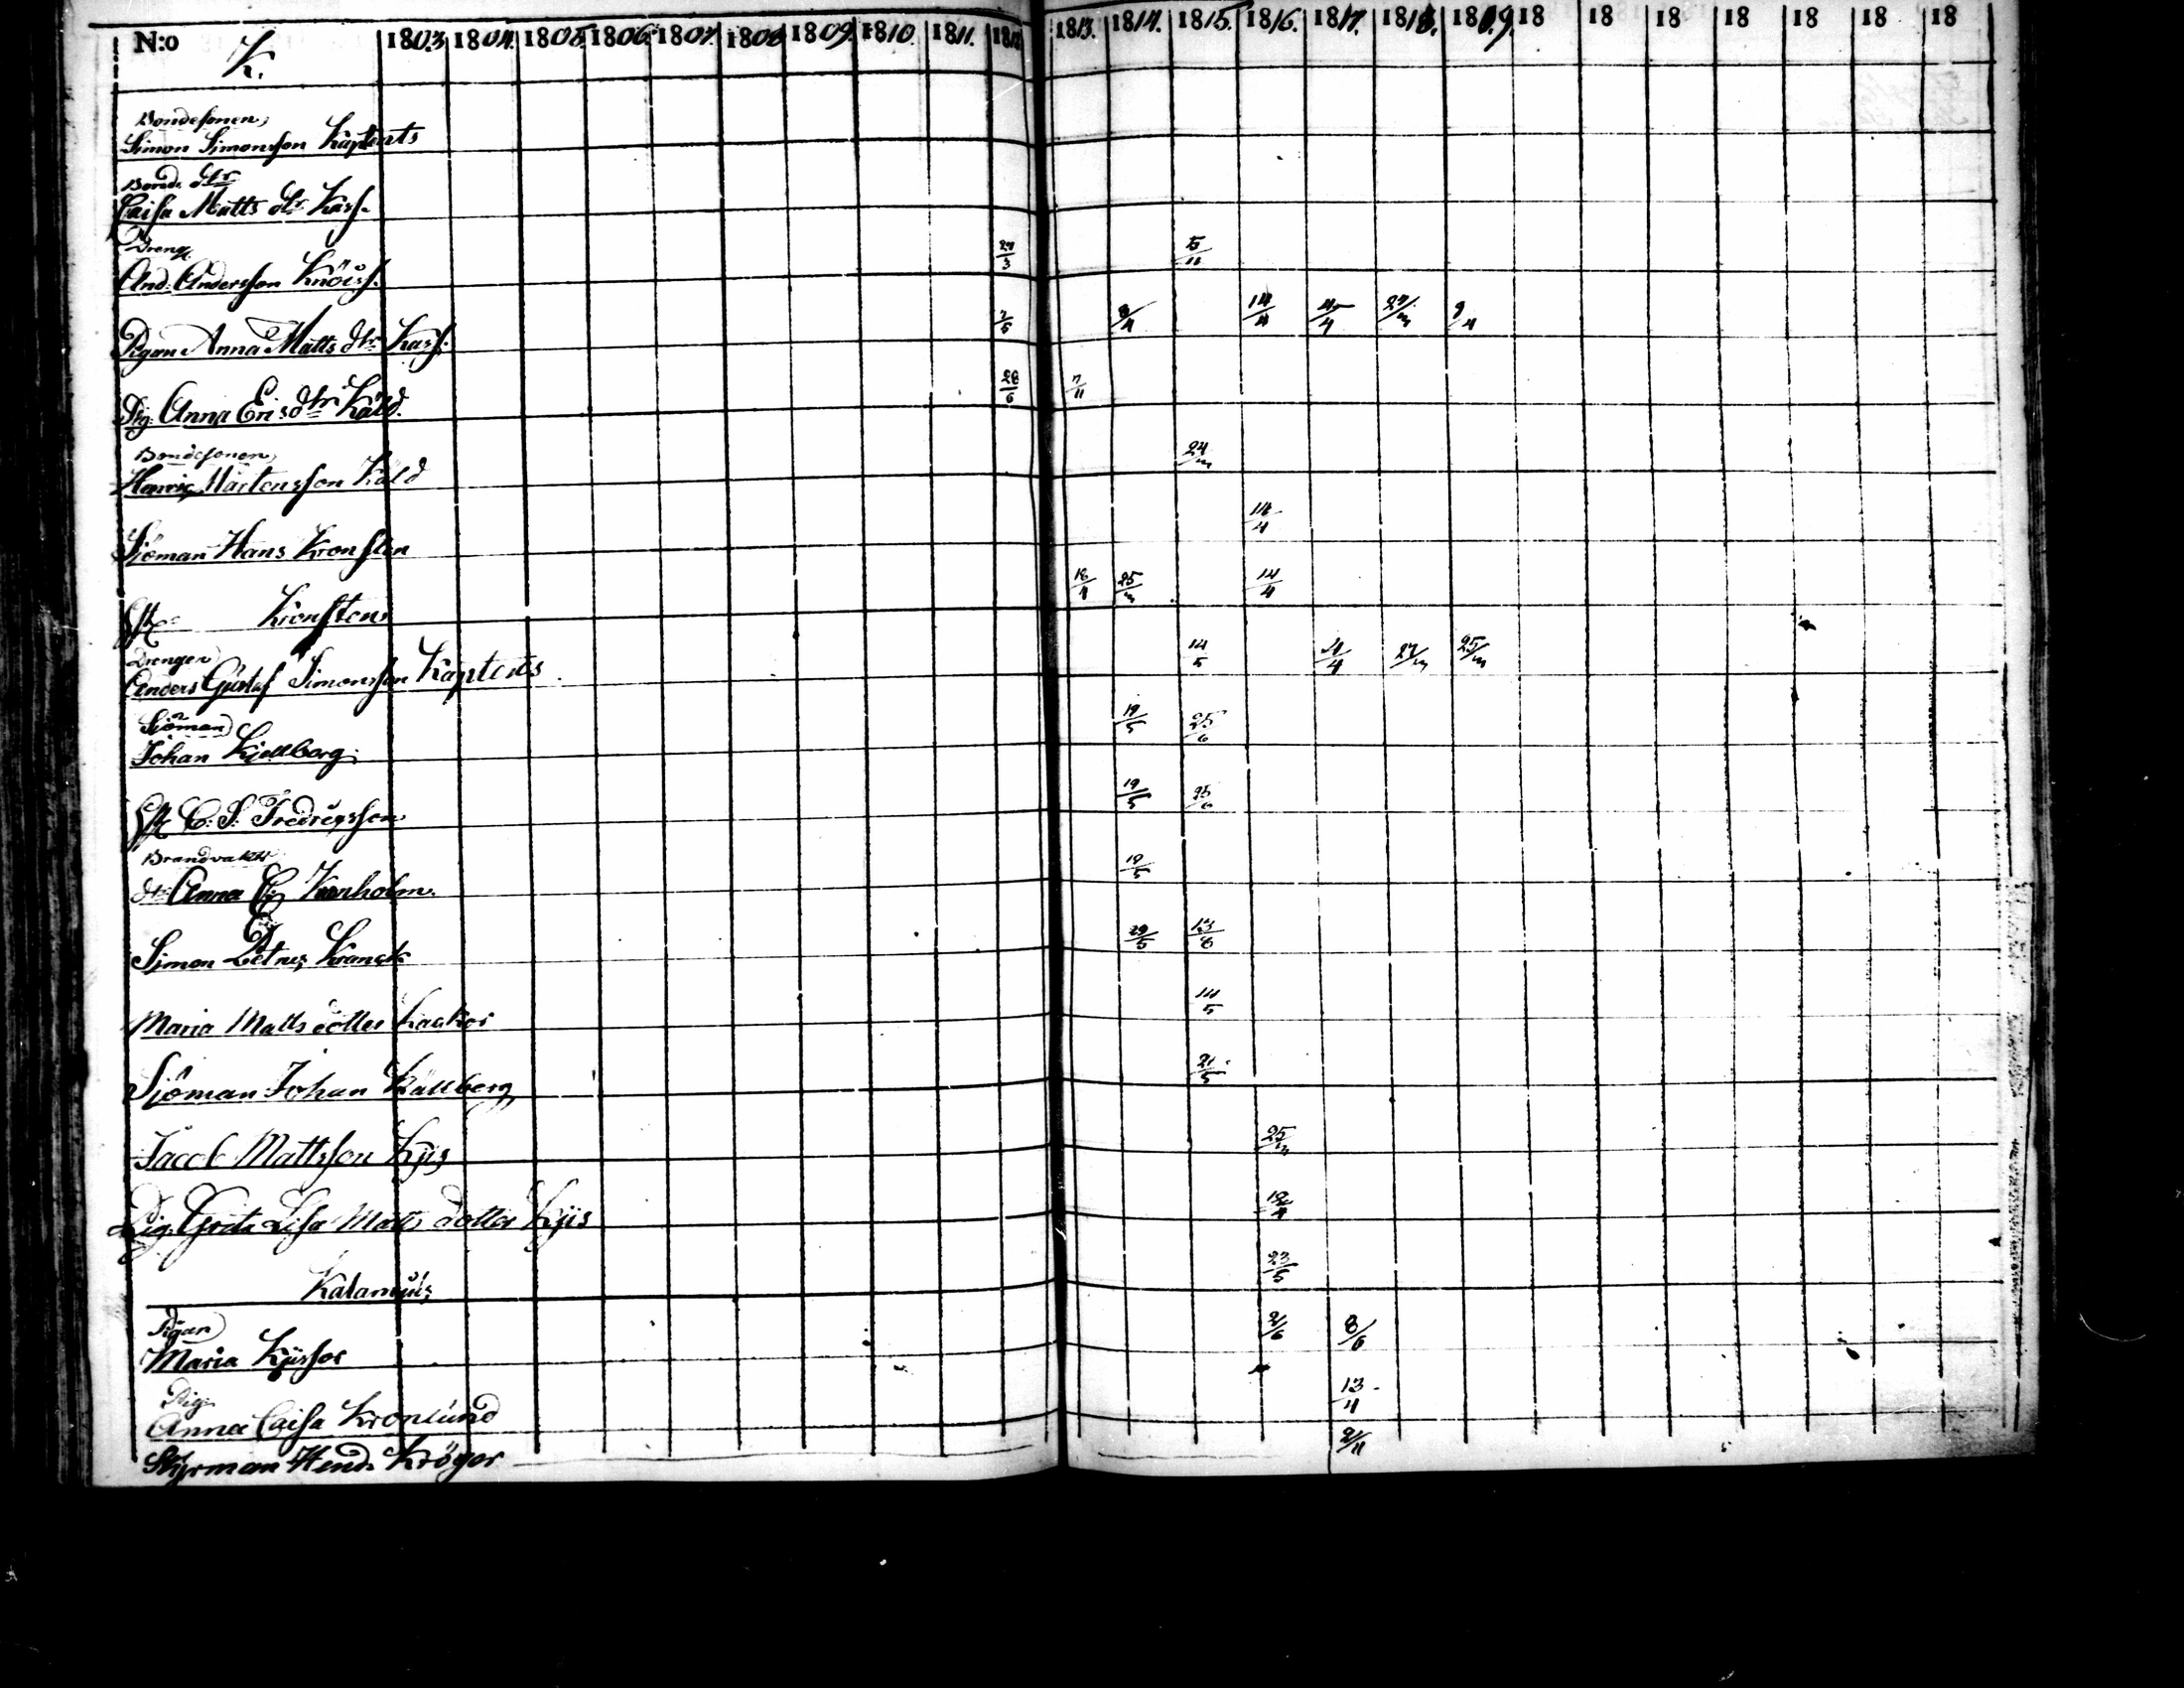 N:o K. 1803. 1804. 1805. 1806. 1807. 1808 1809. 1810. 1811. 1812 1813. 1814. 1815. 1816. 1817. 1818. 1819. 18 18 18 18 18 18 18
Bondesonen
Simon Simonsson Käptents
Bond. dtr
Caisa Matts dtr Kass.
Dreng
And. Andersson Knöisf. 27/3 5/11
Pigan Anna Matts dtr Kasf. 7/5 8/4 14/4 4/4 27/m 9/4
Pig. Anna Erisdtr Käld. 28/6 7/11
Bondesonen
Henric Mårtensson Käld 24/m
Sjöman Hans Kronsten 14/4
Kronsten 18/4 25/m 14/4
Drengen
Anders Gustaf Simonsson Käptents 14/5 4/4 27/m 25/m
Sjöman
Johan Kjellberg 19/5 25/6
C. S. Fredriqsson 19/5 25/6
Brandvakts
dtr Anna C. Kornholm. 19/5
Simon Petrus Kranck 29/5 13/8
Maria Matts dotter Kackor 14/5
Sjöman Johan Källberg 21/5
Jacob Mattsson Kjis 25/m
Pig. Greta Lisa Matts dotter Kjis 12/4
Kalamnius 23/5
Pigan
Maria Kjissor 2/6 8/6
Pig.
Anna Caisa Kronlund 13/4
Styrman Hend. Kröger 2/11